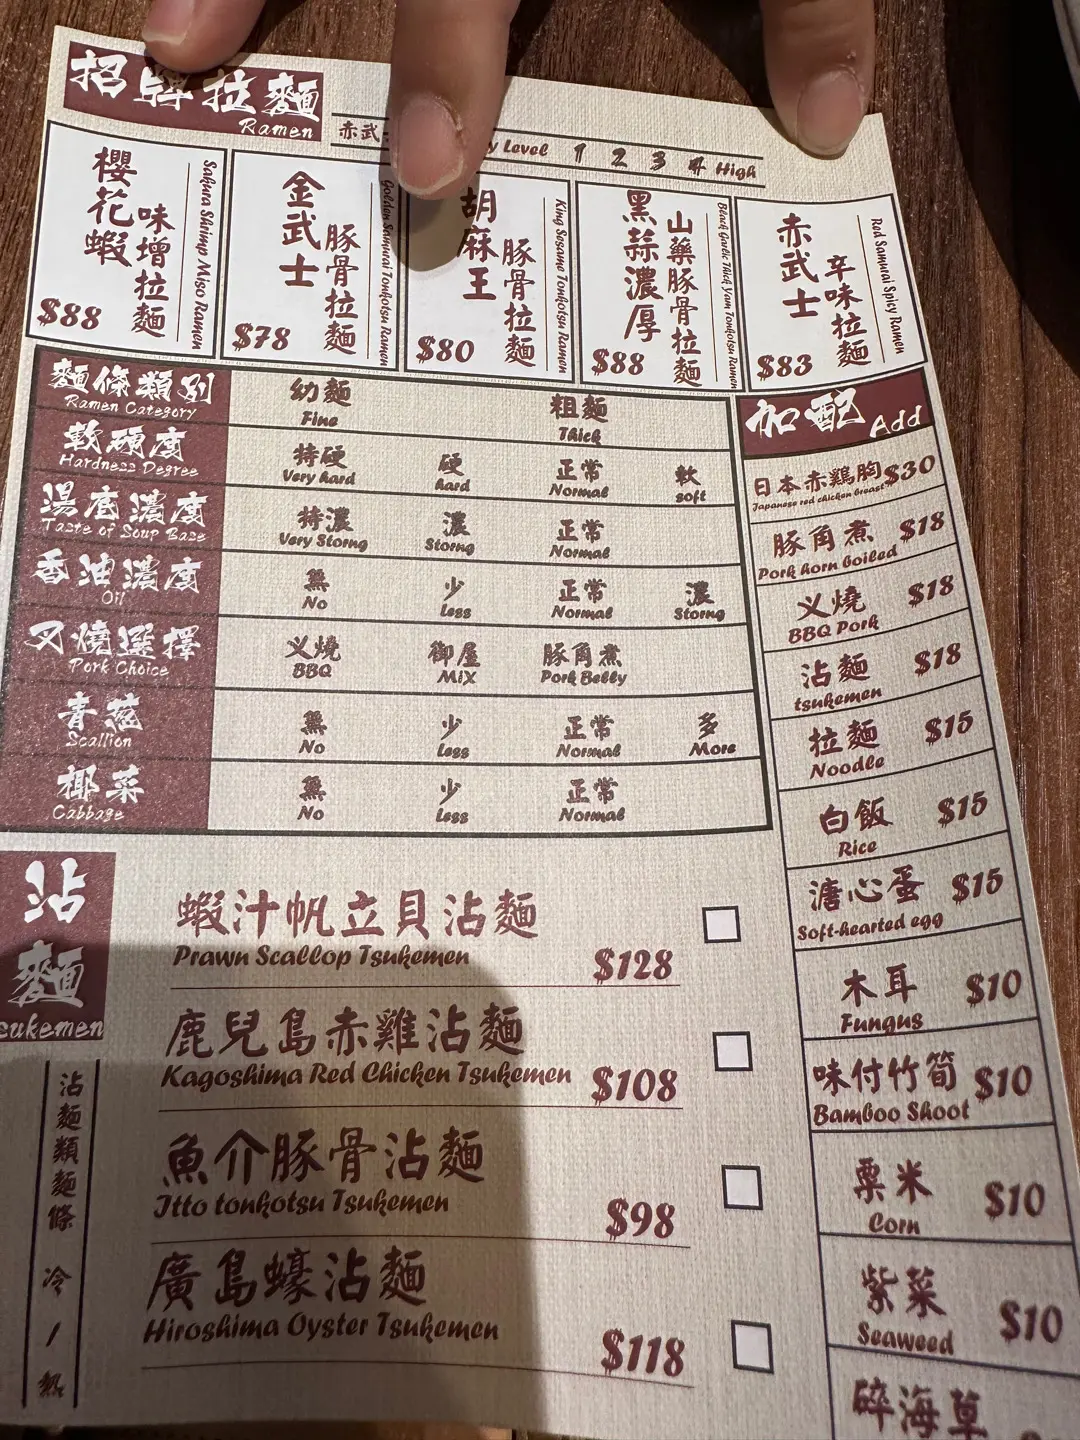 招牌拉麵
Ramen
赤武
Level 1 2 3 4 High
櫻花蝦
味增拉麵
Sakura Shrimp Miso Ramen
$88
金武士
豚骨拉麵
Golden Samurai Tonkotsu Ramen
$78
胡麻王
豚骨拉麵
King Sesame Tonkotsu Ramen
$80
黑蒜濃厚
山藥豚骨拉麵
Black Garlic Thick Yam Tonkotsu Ramen
$88
赤武士
辛味拉麵
Red Samurai Spicy Ramen
$83
麵條類別 幼麵 粗麵
Ramen Category Fine Thick
軟硬度 特硬 硬 正常 軟
Hardness Degree Very hard hard Normal soft
湯底濃度 特濃 濃 正常
Taste of Soup Base Very Storng Storng Normal
香油濃度 無 少 正常 濃
Oil No Less Normal Storng
叉燒選擇 叉燒 御屋 豚角煮
Pork Choice BBQ MiX Pork Belly
青蔥 無 少 正常 多
Scallion No Less Normal More
椰菜 無 少 正常
Cabbage No Less Normal
加配 Add
日本赤鷄胸 $30
Japanese red chicken breast
豚角煮 $18
Pork horn boiled
叉燒 $18
BBQ Pork
沾麵 $18
tsukemen
拉麵 $15
Noodle
白飯 $15
Rice
溏心蛋 $15
Soft-hearted egg
木耳 $10
Fungus
味付竹筍 $10
Bamboo Shoot
粟米 $10
Corn
紫菜 $10
Seaweed
碎海草
沾麵
sukemen
沾麵類麵條 冷/熱
蝦汁帆立貝沾麵
Prawn Scallop Tsukemen $128
鹿兒島赤雞沾麵
Kagoshima Red Chicken Tsukemen $108
魚介豚骨沾麵
Itto tonkotsu Tsukemen $98
廣島蠔沾麵
Hiroshima Oyster Tsukemen $118